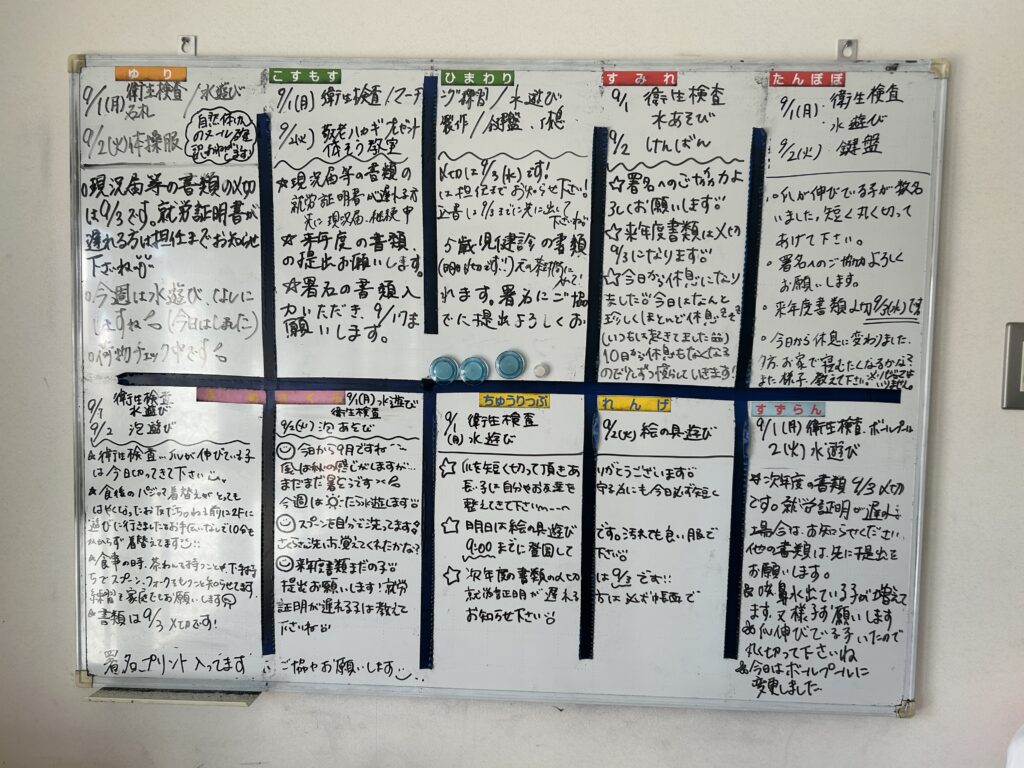 ゆり
9/1(月) 衛生検査/水遊び
名札
9/2(火) 体操服
自然体験
のメール確
認お願いします
○現況届等の書類の〆切
は9/3です。就労証明書が
遅れる方は担任までお知らせ
下さいね
○今週は水遊びなしに
しますね (今日はしました)
○荷物チェック中です
こすもす
ひまわり
9/1(月) 衛生検査/マーチング練習/水遊び
9/2(火) 敬老ハガキ
製作/鍵盤
☆現況届等の書類の〆切は9/3(水)です!
就労証明書が遅れる方に担任までお知らせ下さい!
先に現況届、継続申込書は9/3までに先に出して
下さいね
☆来年度の書類、5歳児健診の書類
の提出お願いします。
☆署名の書類入れます。署名にご協
力いただき、9/17までに提出よろしくお
願いします。
すみれ
9/1 衛生検査
水あそび
9/2 けんばん
☆署名へのご協力よ
ろしくお願いします
☆来年度書類は〆切
9/3になります
☆今日から休息になり
ました 今日はなんと
珍しくほとんど休息
(いつもは起きてました)
10日から休息もなくなる
ので少しずつ慣らしていきます!
たんぽぽ
9/1(月) 衛生検査
水遊び
9/2(火) 鍵盤
○爪が伸びている子が数名
いました。短く丸く切って
あげて下さい。
○署名へのご協力よろしく
お願いします。
○来年度書類〆切9/3(水)です
○今日から休息に変わりました。
夕方、お家で寝むたくなるかな?
また様子、教えて下さい。
9/1 衛生検査
水遊び
9/2 泡遊び
衛生検査、爪が伸びている子
は今日切ってきて下さい
食後のパジャマ着替えがとって
もはやくなったお友だち、ねる前に2Fに
遊びに行きました お手伝いなしで10分も
かからず着替えてます
食事の時、茶わんを持つことや、下手持
ちでスプーン、フォークをもつことを知らせてます。
練習を家庭でもお願いします
書類は9/3〆切です!
署名プリント入ってます
9/1(月) 水遊び
衛生検査
9/2(火) 泡あそび
今日から9月ですね
風は秋の感じがしますが…
まだまだ暑そうです
今週は たら水遊びします
スプーンを自分で洗ってます。
さくらさん洗い方覚えてくれたかな?
来年度書類まだの子
提出お願いします! 就労
証明が遅れる子は教えて
下さいね
ご協力お願いします
ちゅうりっぷ
れんげ
9/1(月) 衛生検査
水遊び
9/2(火) 絵の具遊び
☆爪を短く切って頂きありがとうございます
長い子は自分やお友達を守る為にも今日必ず短く
整えてきて下さい
☆明日は絵の具遊びです。汚れても良い服で
9:00までに登園して下さい
☆次年度の書類の〆切は9/3です
就労証明が遅れる方は必ず帳面で
お知らせ下さい
すずらん
9/1(月) 衛生検査、ボールプール
2(火) 水遊び
次年度の書類9/3〆切
です。就労証明が遅れる
場合は、お知らせください。
他の書類は、先に提出を
お願いします。
咳、鼻水出ている子が増えて
ます。又様子お願いします
爪伸びている子いたので
丸く切って下さいね
今日はボールプールに
変更しました